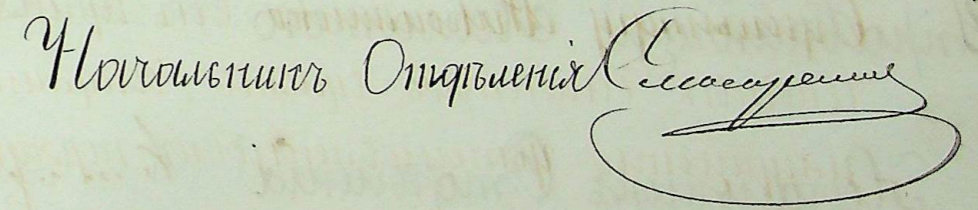 Начальникъ Отдѣленія